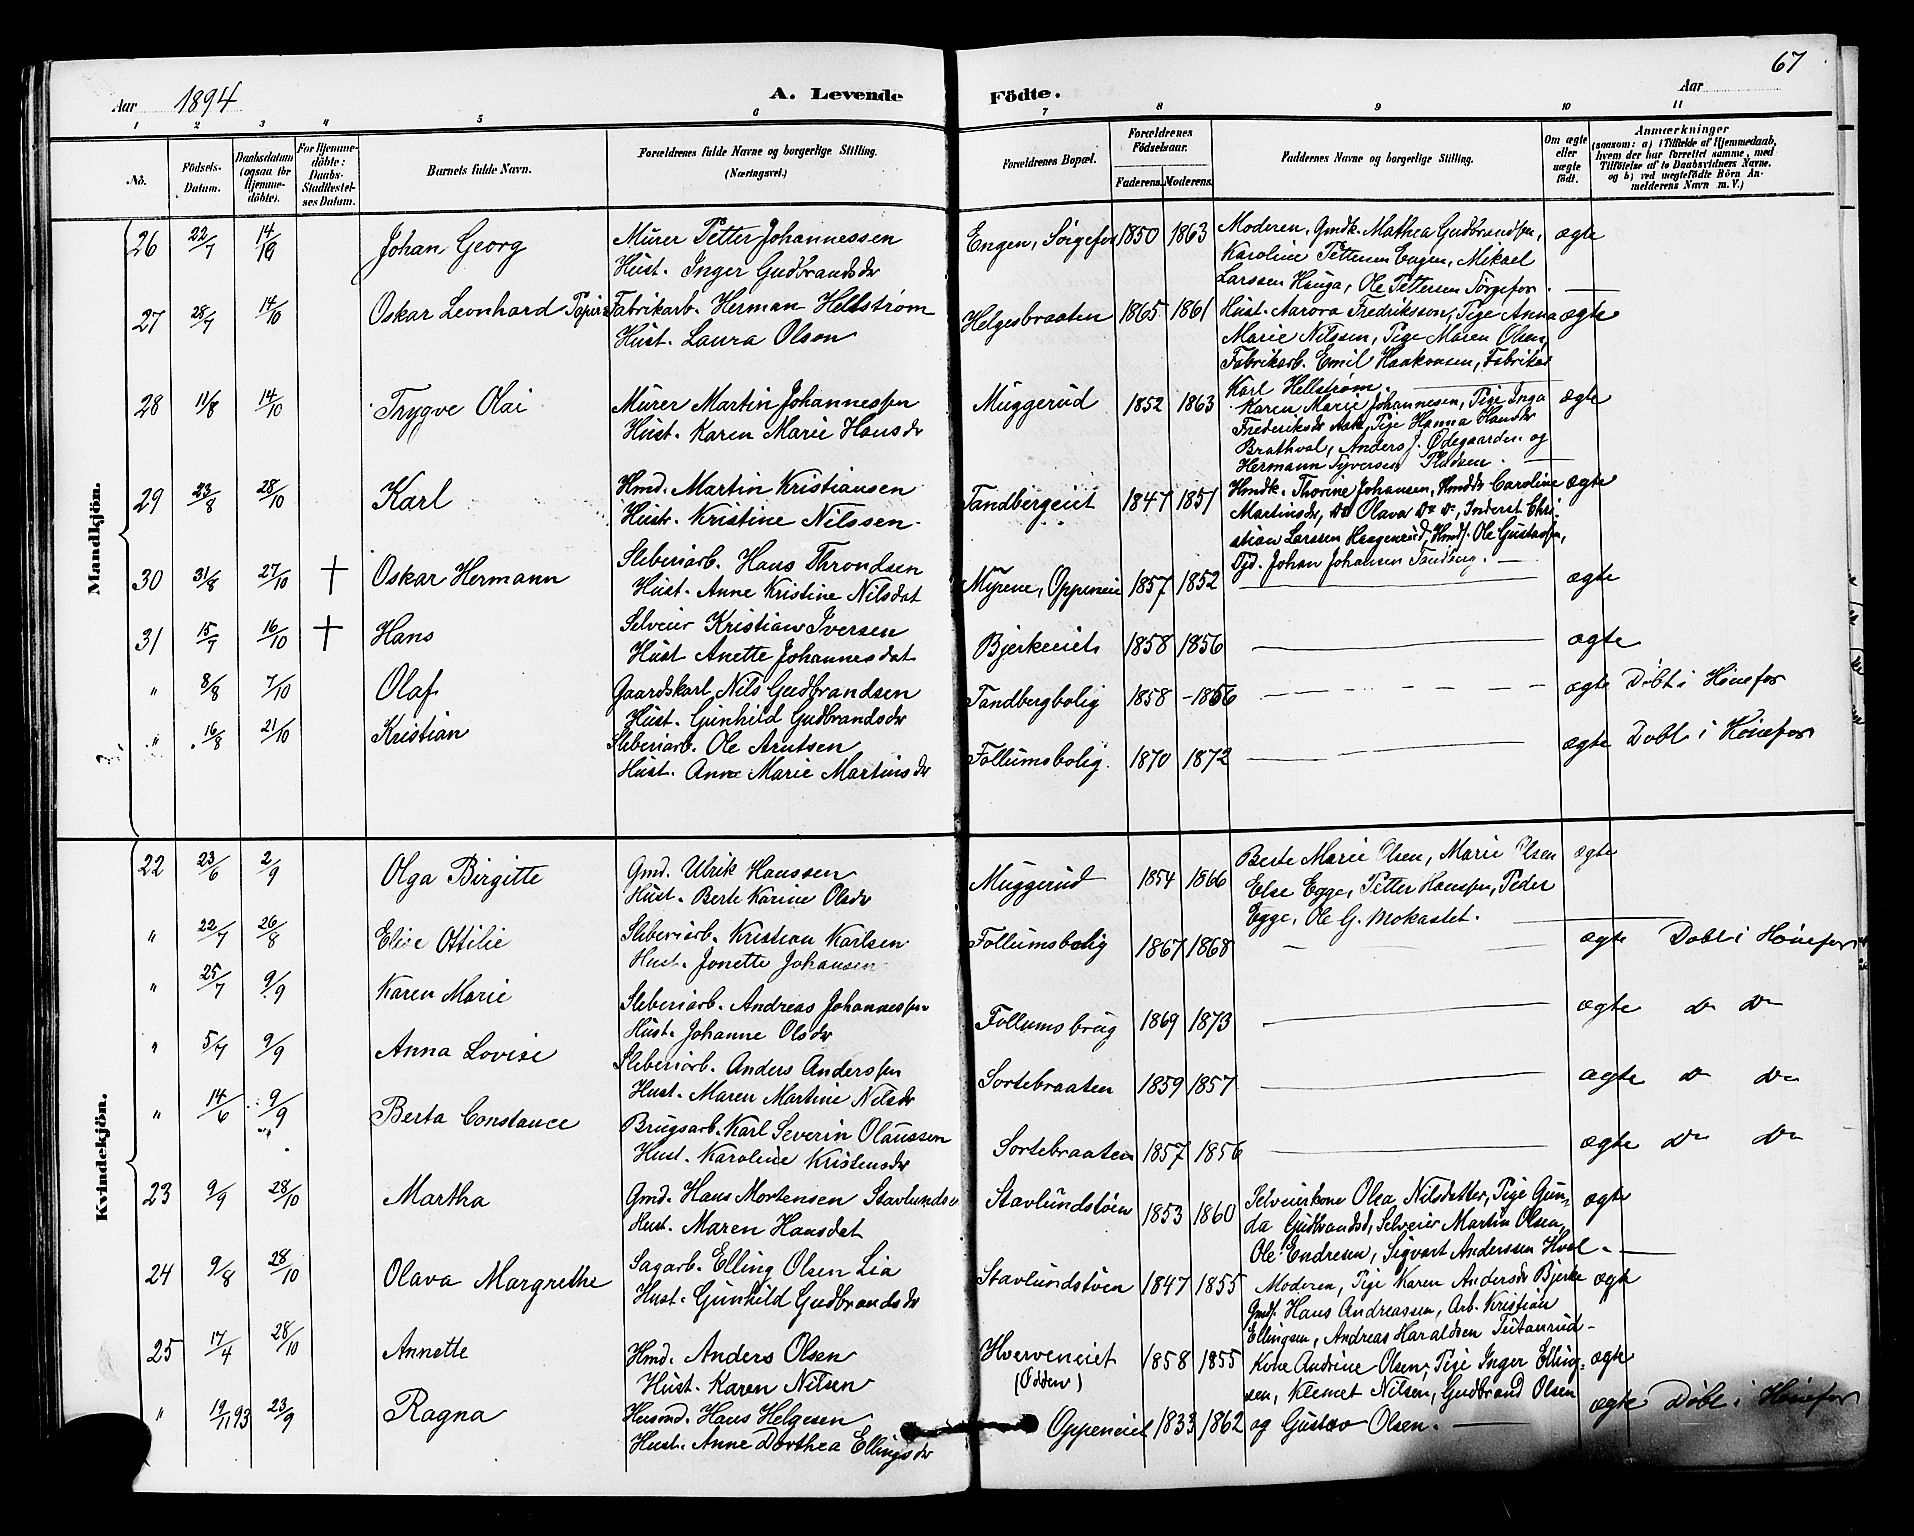 67
Aar 1894 A. Levende Födte. Aar
1 2 3 4 5 6 7 8 9 10 11
No.
Födsels-Datum.
Daabsdatum (ogsaa for Hjemme-döbte).
For Hjemme-döbte: Daabs-Stadfæstel-ses Datum.
Barnets fulde Navn.
Forældrenes fulde Navne og borgerlige Stilling. (Næringsvei.)
Forældrenes Bopæl.
Forældrenes Födselsaar.
Faderens. Moderens.
Faddernes Navne og borgerlige Stilling.
Om ægte eller uægte födt.
Anmærkninger
(saasom: a) i Tilfælde af Hjemmedaab, hvem der har forrettet samme, med Tilföielse af to Daabsvidners Navne, og b) ved uægtefödte Börn An-melderens Navn m. V.)
Mandkjön.
26 22/7 14/10 Johan Georg Murer Petter Johannessen Engen, Sørgefos 1850 1863 Moderen, Gmdk. Mathea Gudbrandsen, ægte
Hust. Inger Gudbrandsdr Karoline Pettersen Engen, Mikael
Larssen Hauga, Ole Pettersen Sørgefos.
27 28/7 14/10 Oskar Leonhard Papir Fabrikarb. Herman Hellstrøm Helgesbraaten 1865 1861 Hust. Aurora Fredriksson, Pige Anna ægte
Hust. Laura Olson Marie Nilssen, Pige Maren Olsen,
Fabrikarb. Emil Haakonsen, Fabrikar
Karl Hellstrøm.
28 11/8 14/10 Trygve Olai Murer Martin Johannessen Muggerud 1852 1863 Karen Marie Johannesen, Pige Inga ægte
Hust. Karen Marie Hansdr Frederiksdr Ask, Pige Hanna Hansdr
Brathval, Anders J. Ødegaarden og
Hermann Syversen
29 23/8 28/10 Karl Hmd. Martin Kristiansen Tandbergeiet 1847 1851 Hmdk. Thorine Johansen, Hmddr Caroline ægte
Hustr. Kristine Nilssen. Martinsdr, Do Olava Do Do, Inderst Chri-
stian Larssen Haagenrud, Hmdf. Ole Gustavsen,
Tjd. Johan Johansen Tandberg.
30 31/8 27/10 † Oskar Hermann Sliberiarb. Hans Throndsen Myrene, Oppeneie 1857 1852 ægte
Hust. Anne Kristine Nilsdat
31 15/7 16/10 † Hans Selveier Kristian Iversen Bjerkeeiet 1858 1856 ægte
Hust Anette Johannesdat
" 8/8 7/10 Olaf Gaardskarl Nils Gudbrandsen Tandbergbolig 1858 1856 ægte Døbt i Hønefos
Hust. Gunhild Gudbrandsdr
" 16/8 21/10 Kristian Sliberiarb. Ole Arntsen Follumsbolig. 1870 1872 ægte Døbt i Hønefos
Hust. Anne Marie Martinsdr
Kvindekjön.
22 23/6 2/9 Olga Birgitte Gmd. Ulrik Hanssen Muggerud 1854 1866 Berte Marie Olsen, Marie Olsen ægte
Hust. Berte Karine Olsdr Else Egge, Petter Hansen, Peder
Egge, Ole G. Mokastet.
" 22/7 26/8 Elise Ottilie Sliberiarb. Kristian Karlsen Follumsbolig 1867 1868 ægte Døbt i Hønefos
Hust. Jonette Johansen
" 25/7 9/9 Karen Marie Sliberiarb. Andreas Johannessen Follumsbrug 1869 1873 ægte Do Do
Hust. Johanne Olsdr
" 5/7 9/9 Anna Lovise Sliberiarb. Anders Anderssen Sortebraaten 1859 1857 ægte Do Do
Hust. Maren Martine Nilsdr
" 14/6 9/9 Berta Constance Brugsarb. Karl Severin Olaussen Sortebraaten 1857 1856 ægte Do Do
Hust. Karoline Kristensdr
23 9/9 28/10 Martha Gmd. Hans Mortensen Stavlundsie Stavlundstøen 1853 1860 Selveierkone Olea Nilsdatter, Pige Gun- ægte
Hust. Maren Hansdat da Gudbrandsd, Selveier Martin Olsen,
Ole Endresen, Sigvart Anderssen Hval.
24 9/8 28/10 Olava Margrethe Sagarb. Elling Olsen Lia Stavlundstøen 1847 1855 Moderen, Pige Karen Andersdr Bjerke ægte
Hust. Gunhild Gudbrandsdr Gmdf. Hans Andreassen, Arb. Kristian
Ellingsen, Andreas Haraldsen
25 17/4 28/10 Annette Hmd. Anders Olsen Hverveneiet (Odden) 1858 1855 Kone Andrine Olsen, Pige Inger Elling- ægte
Hust. Karen Nilsen sen, Klemet Nilsen, Gudbrand Olsen
og Gustav Olsen.
" 19/11 93 23/9 Ragna Husmd. Hans Helgesen Oppeneiet 1833 1862 ægte Døbt i Hønefos
Hust. Anne Dorthea Ellingsdr